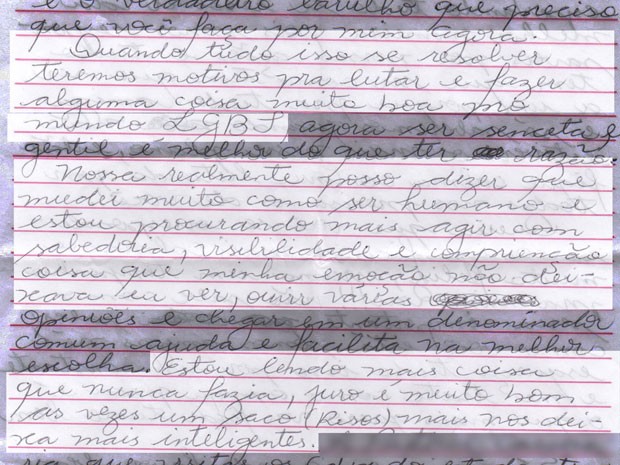 e o verdadeiro barulho que preciso
que você faça por mim agora.
Quando tudo isso se resolver
teremos motivos pra lutar e fazer
alguma coisa muito boa pro
mundo LGBS, agora ser senceta &
gentil é melhor do que ter razão.
Nossa realmente posso dizer que
mudei muito como ser humano e
estou procurando mais agir com
sabedoria, visibilidade e comprienção
coisa que minha emoção não dei-
xava eu ver, ouvir várias
opiniões e chegar em um denominador
comum ajuda e facilita na melhor
escolha. Estou lendo mais coisa
que nunca fazia, juro é muito bom
as vezes um saco (Risos) mais nos dei-
xa mais inteligentes.
que